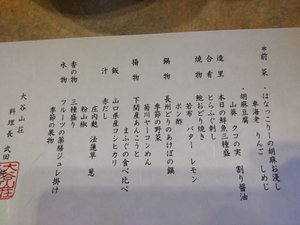 *前菜 ・はなっこりーの胡麻お浸し
車海老 りんご しめじ
・胡麻豆腐
山葵 クコの実 割り醤油
造里 本日の鮮魚三種盛
合肴 とらふぐ刺し
焼物 鮭おどり焼き
若布 バター レモン
鍋物 長州どりのあけぼの鍋
季節の野菜
ポン酢
菊川ヤーコンめん
揚物 下関産あんこうと
まふぐの食べ比べ
飯 山口県産コシヒカリ
汁 赤だし
庄内麩 法蓮草 葱
粉山椒
香の物 三種盛り
水物 フルーツの薬膳ジュレ掛け
季節の果物
大谷山荘
料理長 武田